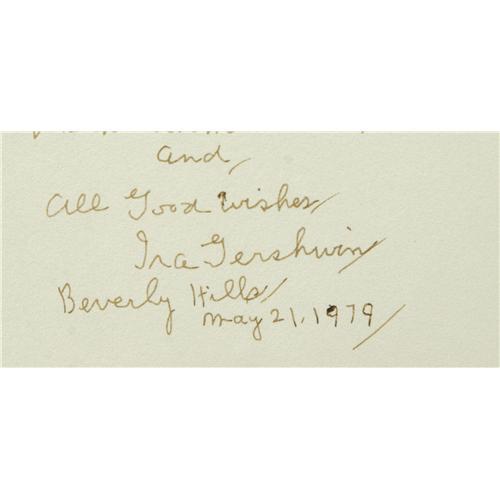 and,
All Good Wishes,
Ira Gershwin
Beverly Hills/
May 21, 1979/